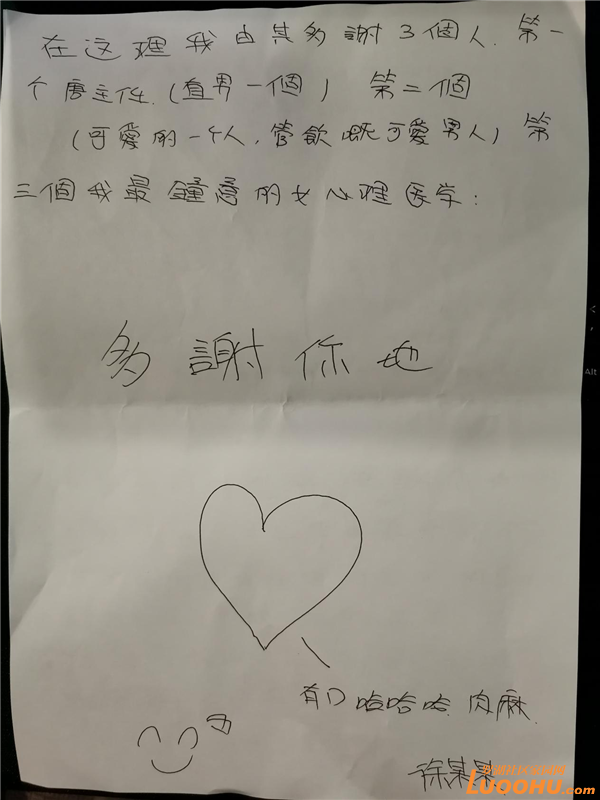 在这理我由其多謝3個人.第一
个唐主任.(直男一個) 第二個
(可愛的一个人,管飲嘅可愛男人)第
三個我最鐘意的女心理医学:
多謝你地
有D哈哈哈肉麻.
徐某某
LUOOHU.com